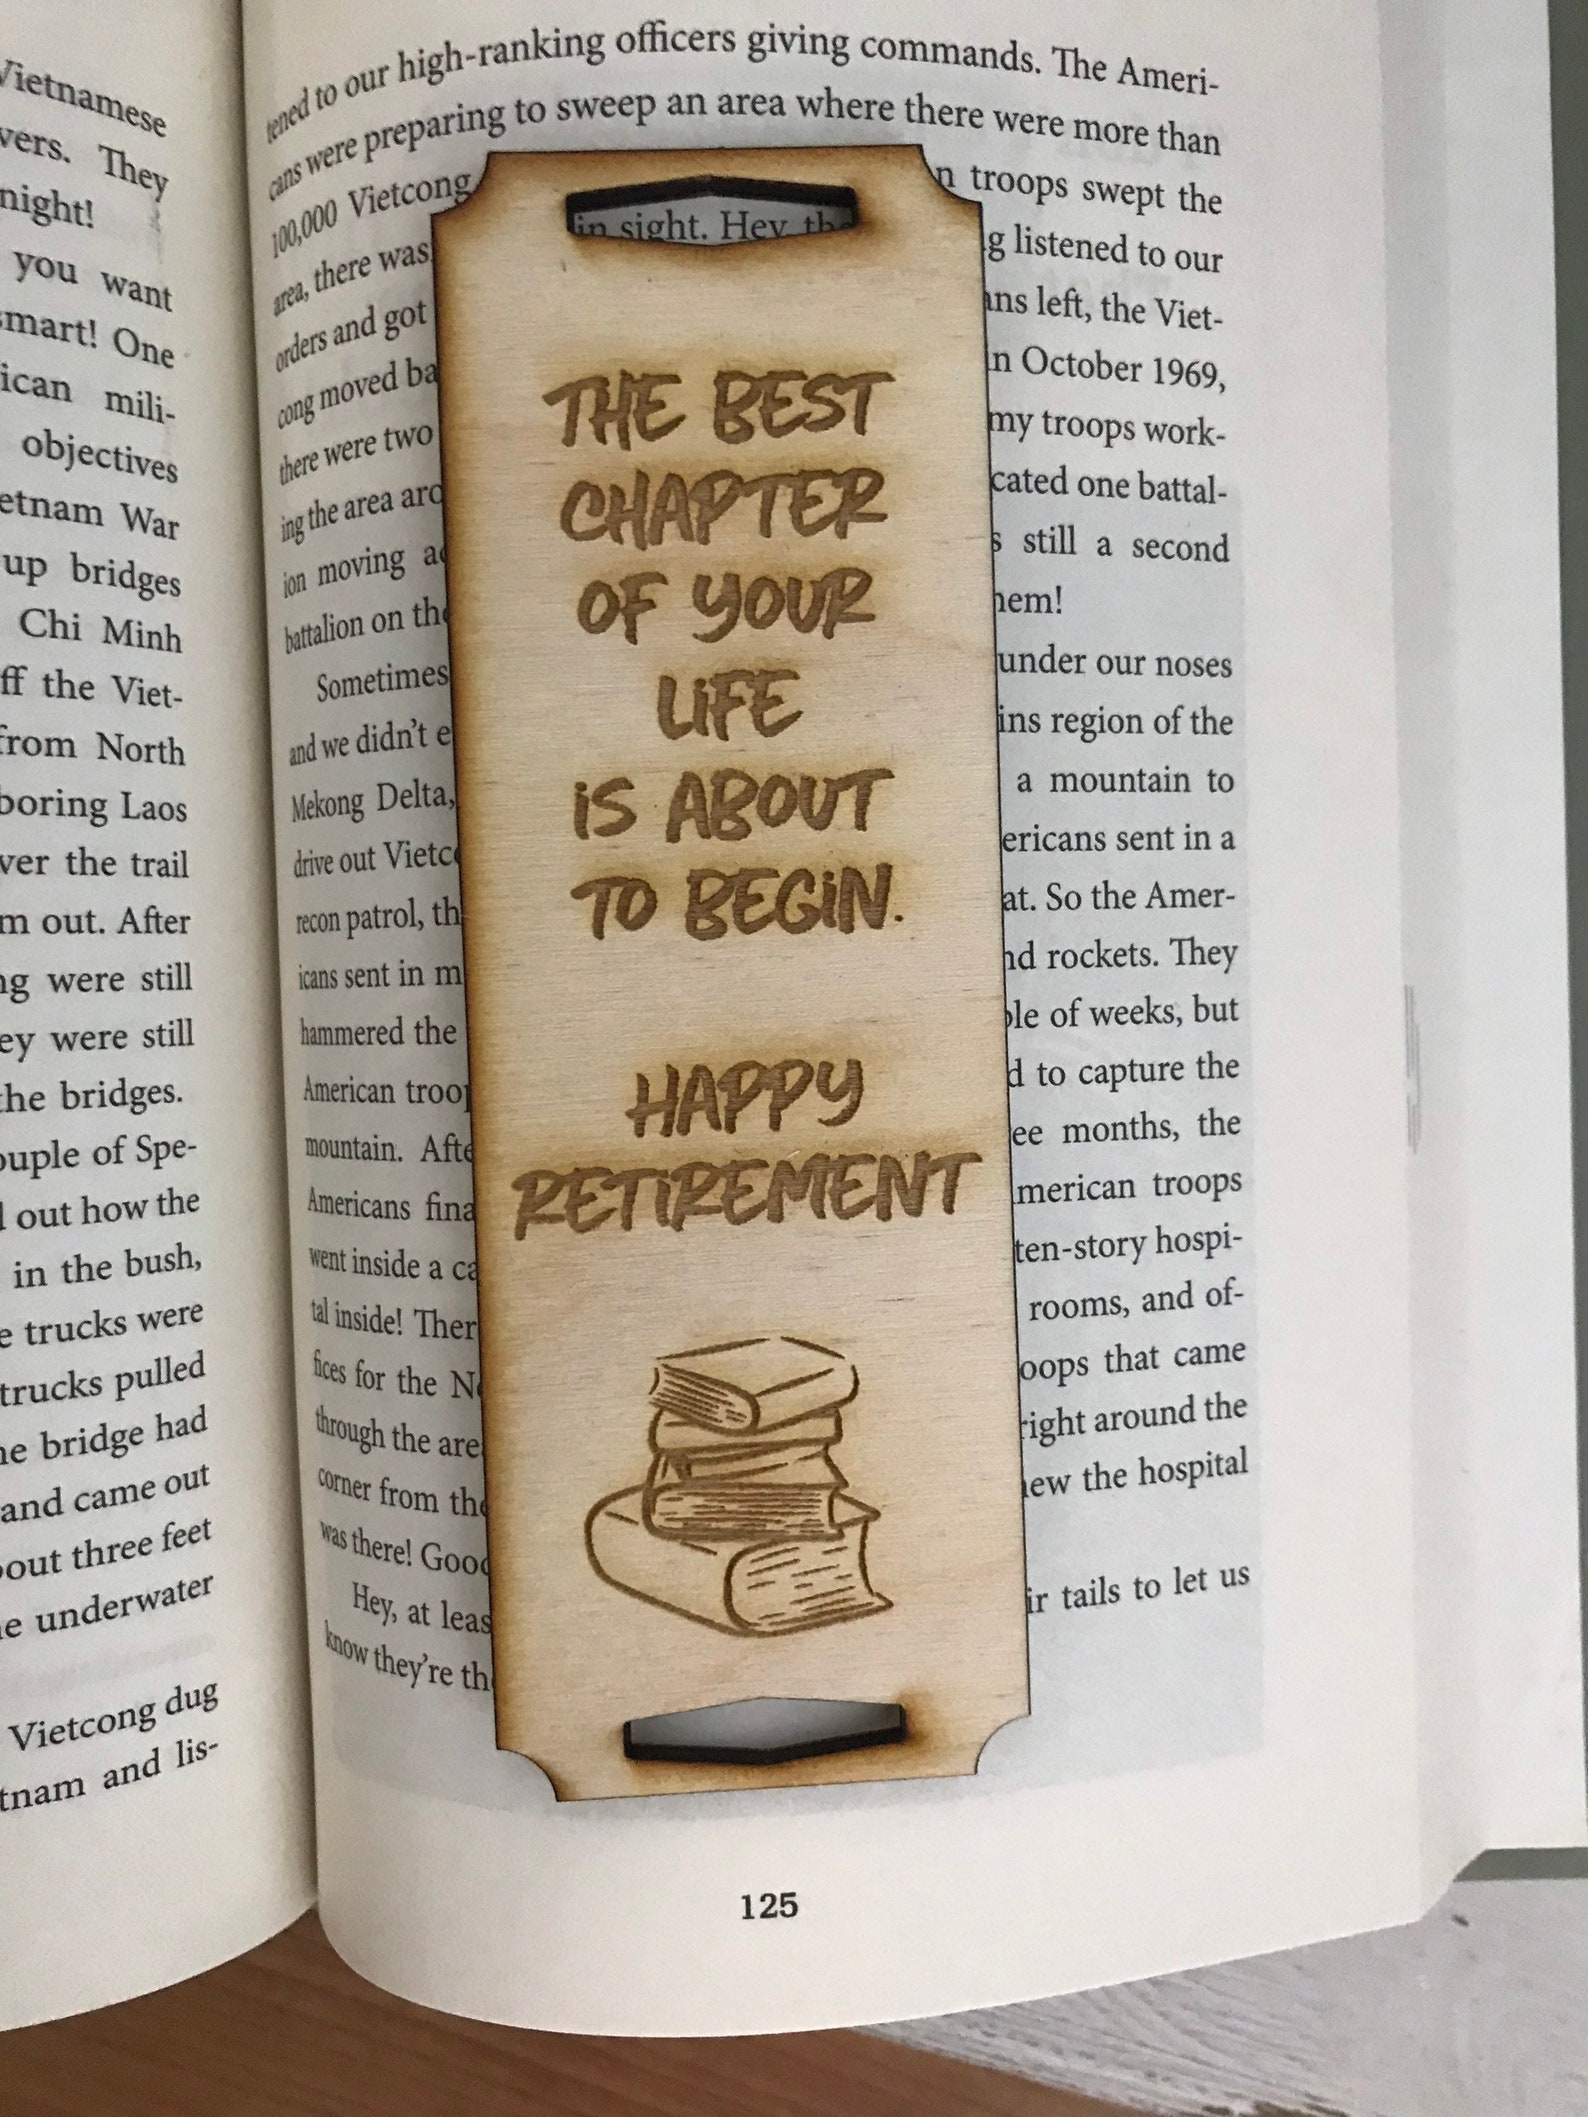 Vietnamese
vers. They
night!
you want
smart! One
ican mili-
objectives
etnam War
up bridges
Chi Minh
ff the Viet-
from North
boring Laos
ver the trail
m out. After
ng were still
ey were still
the bridges.
ouple of Spe-
out how the
in the bush,
e trucks were
trucks pulled
ne bridge had
and came out
bout three feet
he underwater
Vietcong dug
tnam and lis-
tened to our high-ranking officers giving commands. The Ameri-
cans were preparing to sweep an area where there were more than
100,000 Vietcong n troops swept the
area, there was in sight. Hey, the g listened to our
orders and got ans left, the Viet-
cong moved ba n October 1969,
there were two my troops work-
ing the area aro cated one battal-
ion moving ac s still a second
battalion on the hem!
Sometimes under our noses
and we didn't e ins region of the
Mekong Delta, a mountain to
drive out Vietc ericans sent in a
recon patrol, th at. So the Amer-
icans sent in m nd rockets. They
hammered the ple of weeks, but
American troop d to capture the
mountain. Afte ee months, the
Americans fina merican troops
went inside a ca ten-story hospi-
tal inside! Ther rooms, and of-
fices for the No oops that came
through the are right around the
corner from the new the hospital
was there! Good
Hey, at leas ir tails to let us
know they're th
THE BEST
CHAPTER
OF YOUR
LIFE
IS ABOUT
TO BEGIN.
HAPPY
RETIREMENT
125